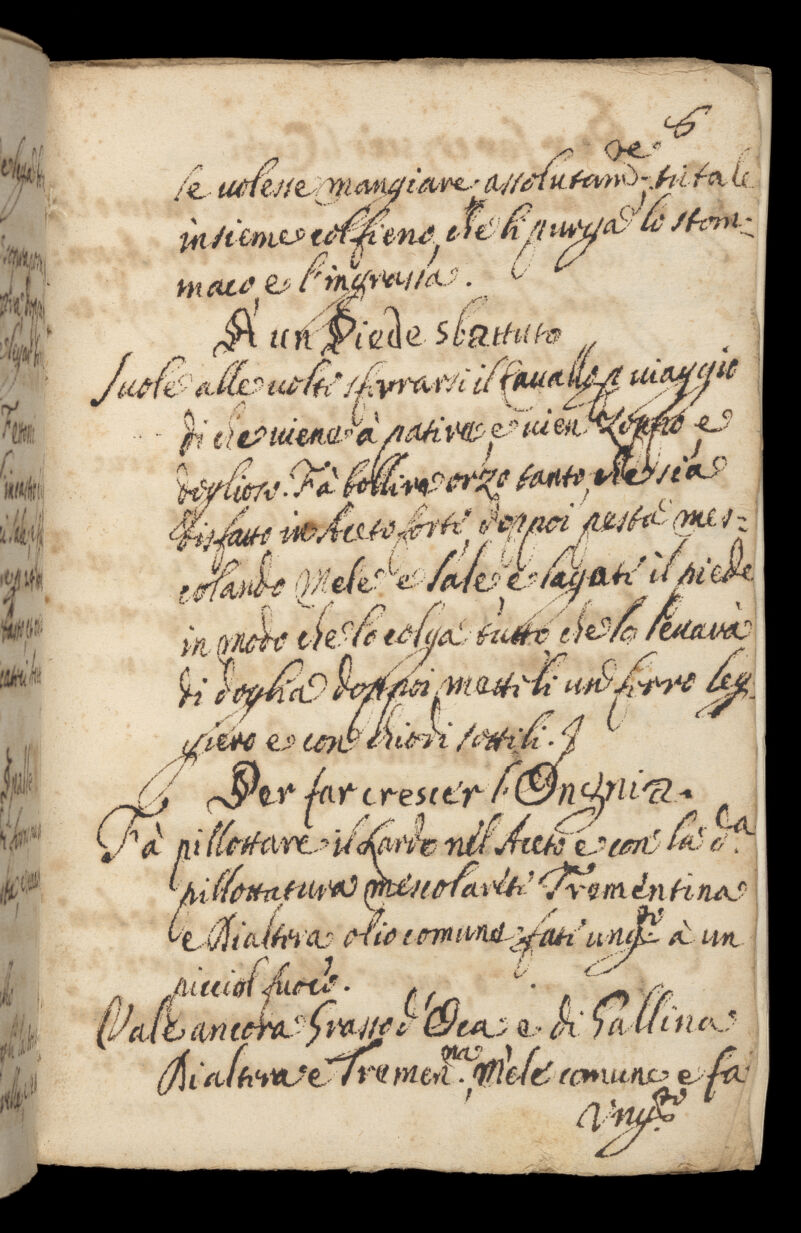 6
se volesse mangiare assolutam.te tritale
insieme col fieno, che li purga lo stom=
maco, e l'ingrassa.
A un Piede sbattuto
Suole alle volte sferrarsi il Cavallo p viaggio
di che viene à patire, e vien Zoppo, e
doglioso. Fà bollire orzo tanto, che sia
disfatto in Aceto forte, doppoi pesta mes=
colando Mele e Sale e lagati il piede
in modo che lo colga tutto che lo levarà
di doglia doppoi mettili un ferro leg=
giero e con chiodi sottili.
Per far crescer l'Ongnia.
Fà pillottare il Lardo nel Aceto e con la d.a
pillottatura mescolareti Trementina
e Dialtera olio comune fati ung.to à un
picciol fuoco.
Vale ancora Grasso d'Oca e di Gallina
Dialtera e Tremen.na, Mele comune e fa
Ung.to